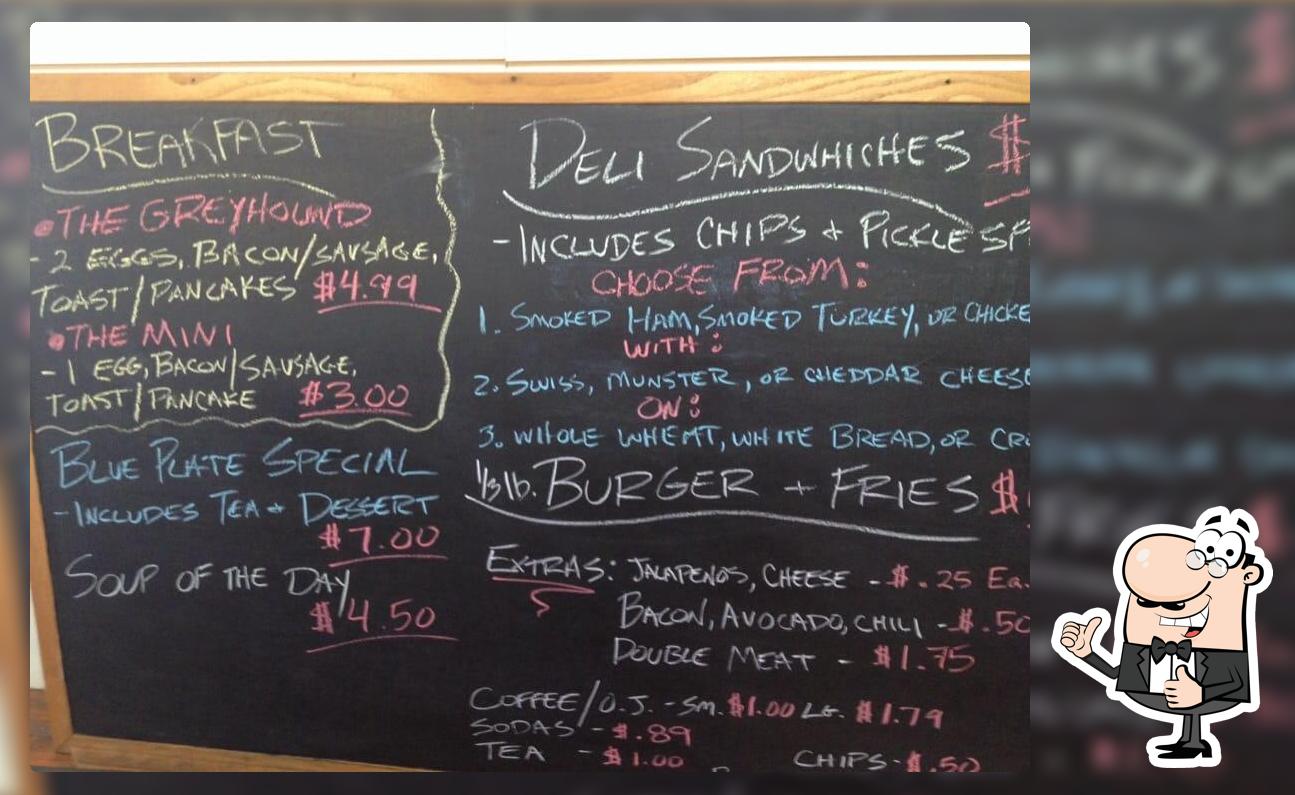 BREAKFAST
•THE GREYHOUND
- 2 EGGS, BACON/SAUSAGE,
TOAST/PANCAKES $4.99
•THE MINI
-1 EGG, BACON/SAUSAGE,
TOAST/PANCAKE $3.00
BLUE PLATE SPECIAL
-INCLUDES TEA + DESSERT
$7.00
SOUP OF THE DAY
$4.50
DELI SANDWHICHES $
-INCLUDES CHIPS + PICKLE SP
CHOOSE FROM:
1. SMOKED HAM, SMOKED TURKEY, OR CHICKE
WITH:
2. SWISS, MUNSTER, OR CHEDDAR CHEESE
ON:
3. WHOLE WHEAT, WHITE BREAD, OR CR
1/3 lb. BURGER + FRIES $
EXTRAS: JALAPENOS, CHEESE - $.25 Ea.
BACON, AVOCADO, CHILI - $.50
DOUBLE MEAT - $1.75
COFFEE/O.J. - SM. $1.00 LG. $1.79
SODAS - $.89
TEA - $1.00
CHIPS - $.50